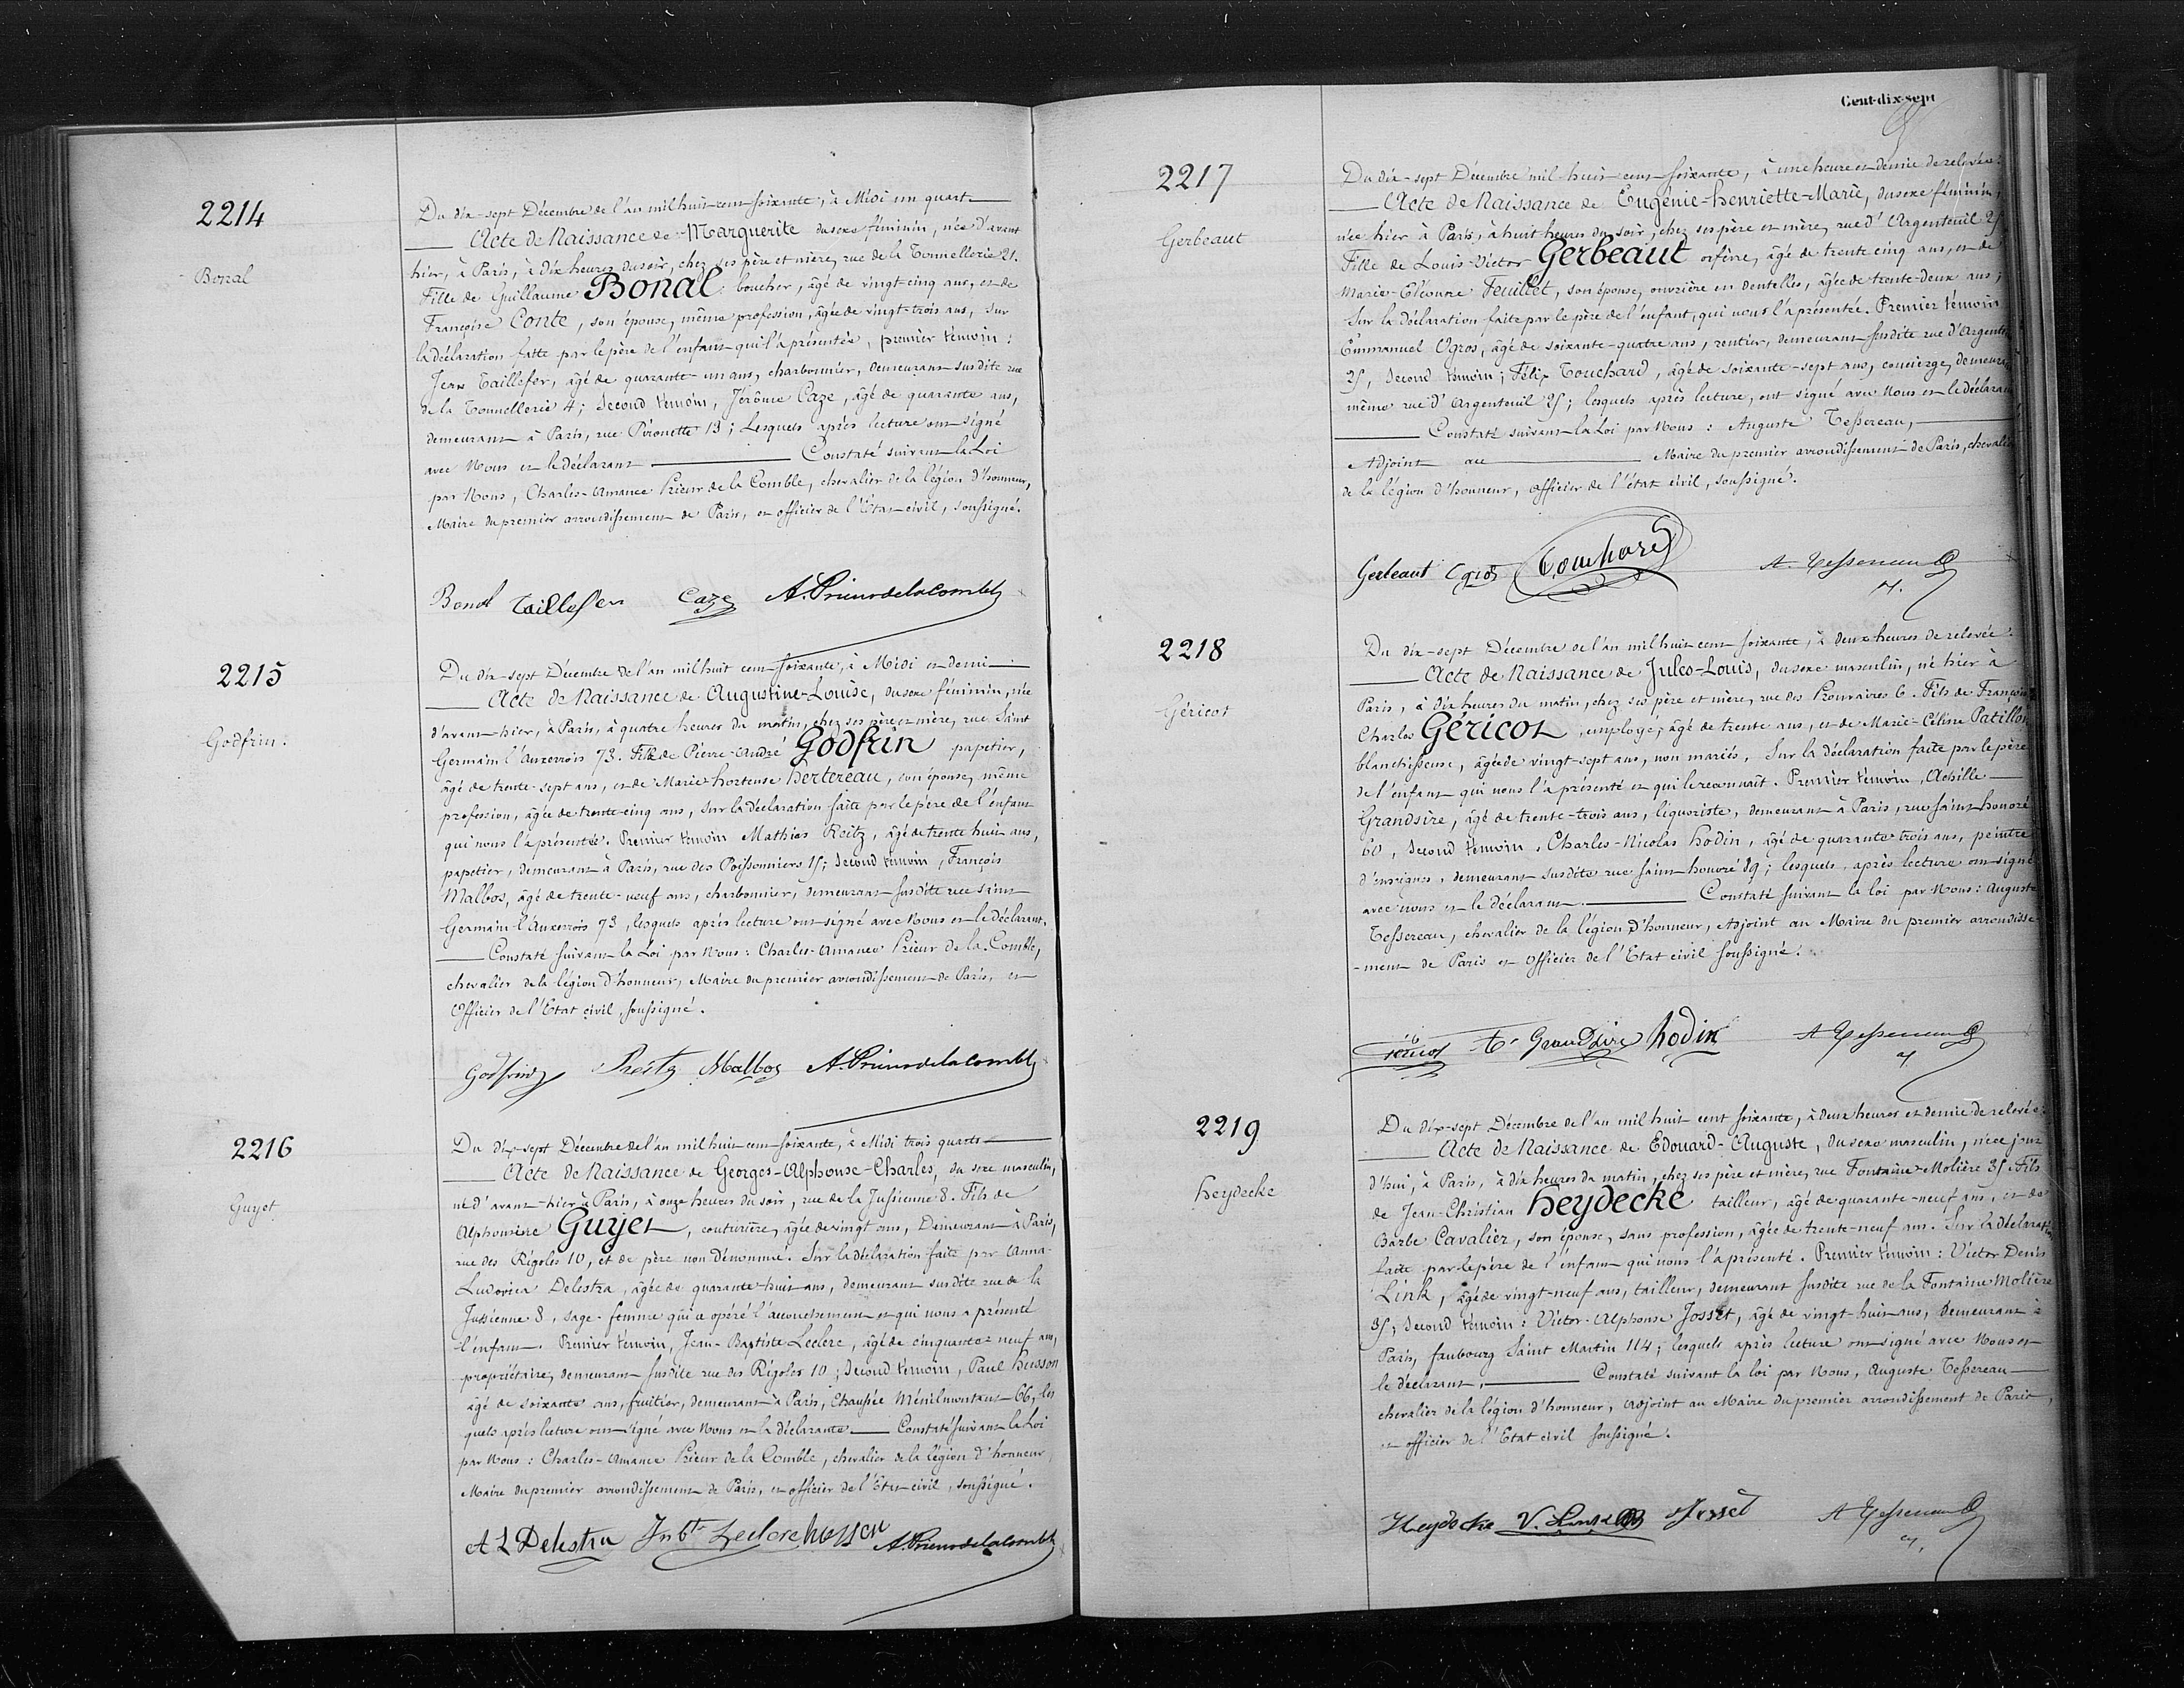 2214
Bonal
Du dix-sept Décembre de l'an mil huit cent soixante, à Midi un quart
Acte de Naissance de Marguerite du sexe féminin, née d'avant
hier, à Paris, à dix heures du soir, chez ses père et mère, rue de la Tonnellerie 21.
Fille de Guillaume Bonal, boucher, âgé de vingt-cinq ans, et de
Françoise Conte, son épouse, même profession, âgée de vingt-trois ans, sur
la déclaration faite par le père de l'enfant qui l'a présentée, premier témoin :
Jean Taillefer, âgé de quarante-un ans, charbonnier, demeurant susdite rue
de la Tonnellerie 4; Second témoin, Jérôme Caze, âgé de quarante ans,
demeurant à Paris, rue Pirouette 13; Lesquels après lecture ont signé
avec Nous et le déclarant Constaté suivant la Loi
par Nous, Charles-Amance Prieur de la Comble, chevalier de la légion d'honneur,
Maire du premier arrondissement de Paris, et officier de l'Etat civil, soussigné.
Bonal Taillefer Caze A. Prieur de la Comble
2215
Godfrin.
Du dix-sept Décembre de l'an mil huit cent soixante, à Midi et demi
Acte de Naissance de Augustine-Louise, du sexe féminin, née
d'avant-hier, à Paris, à quatre heures du matin, chez ses père et mère, rue Saint
Germain l'Auxerrois 73. Fille de Pierre-André Godfrin papetier,
âgé de trente-sept ans, et de Marie-hortense hertereau, son épouse, même
profession, âgée de trente-cinq ans, sur la déclaration faite par le père de l'enfant
qui nous l'a présentée. Premier témoin Mathias Reitz, âgé de trente huit ans,
papetier, demeurant à Paris, rue des Poissonniers 15; Second témoin, François
Malbos, âgé de trente-neuf ans, charbonnier, demeurant susdite rue saint
Germain-l'Auxerrois 73, lesquels après lecture ont signé avec Nous et le déclarant.
Constaté suivant la Loi par Nous : Charles-Amance Prieur de la Comble,
chevalier de la légion d'honneur, Maire du premier arrondissement de Paris, et
Officier de l'Etat civil, soussigné.
Godfrin Reitz Malbos A. Prieur de la Comble
2216
Guyet
Du dix-sept Décembre de l'an mil huit cent soixante, à Midi trois quarts
Acte de Naissance de Georges-Alphonse-Charles, du sexe masculin,
né d'avant-hier à Paris, à onze heures du soir, rue de la Jussienne 8. Fils de
Alphonsine Guyet, couturière, âgée de vingt ans, Demeurant à Paris,
rue des Rigoles 10, et de père non dénommé. Sur la déclaration faite par Anna-
Ludovica Delestra, âgée de quarante-huit ans, demeurant susdite rue de la
Jussienne 8, sage-femme qui a opéré l'accouchement et qui nous a présenté
l'enfant. Premier témoin, Jean-Baptiste Leclerc, âgé de cinquante-neuf ans,
propriétaire, demeurant susdite rue des Rigoles 10; Second témoin, Paul husson
âgé de soixante ans, fruitier, demeurant à Paris, Chaussée Ménilmontant 66, les
quels après lecture ont signé avec Nous et la déclarante. Constaté suivant la Loi
par Nous : Charles-Amance Prieur de la Comble, chevalier de la légion d'honneur,
Maire du premier arrondissement de Paris, et officier de l'Etat civil, soussigné.
A L Delestra Jn Bte Leclerc husson A. Prieur de la Comble
Cent-dix-sept
2217
Gerbeaut
Du dix-sept Décembre mil-huit-cent-soixante, à une heure et demie de relevée.
Acte de Naissance de Eugénie-henriette-Marie, du sexe féminin,
née hier à Paris, à huit heures du soir, chez ses père et mère, rue d'Argenteuil 25
Fille de Louis-Victor Gerbeaut orfèvre, âgé de trente cinq ans, et de
Marie-Eléonore Feuillet, son épouse, ouvrière en dentelles, âgée de trente-deux ans;
Sur la déclaration faite par le père de l'enfant, qui nous l'a présentée. Premier témoin
Emmanuel Ogros, âgé de soixante-quatre ans, rentier, demeurant susdite rue d'Argenteuil
25, Second témoin; Félix Touchard, âgé de soixante-sept ans, concierge, demeurant
même rue d'Argenteuil 25; lesquels après lecture, ont signé avec Nous et le déclarant
Constaté suivant la Loi par Nous : Auguste Tessereau,
Adjoint au Maire du premier arrondissement de Paris, chevalier
de la légion d'honneur, officier de l'état civil, soussigné.
Gerbeaut Ogros Touchard A. Tessereau
2218
Géricot
Du dix-sept Décembre de l'an mil huit cent soixante, à deux heures de relevée.
Acte de Naissance de Jules-Louis, du sexe masculin, né hier à
Paris, à dix heures du matin, chez ses père et mère, rue des Prouvaires 6. Fils de François
Charles Géricot, employé, âgé de trente ans, et de Marie-Céline Patillon
blanchisseuse, âgée de vingt-sept ans, non mariés, Sur la déclaration faite par le père
de l'enfant qui nous l'a présenté et qui le reconnaît. Premier témoin, Achille
Grandsire, âgé de trente-trois ans, liquoriste, demeurant à Paris, rue saint honoré
60, Second témoin, Charles-Nicolas hodin, âgé de quarante trois ans, peintre
d'enseignes, demeurant susdite rue saint honoré 89; lesquels, après lecture ont signé
avec nous et le déclarant. Constaté suivant la loi par Nous : Auguste
Tessereau, chevalier de la légion d'honneur, Adjoint au Maire du premier arrondisse-
-ment de Paris et Officier de l'Etat civil soussigné.
Géricot Grandsire hodin A Tessereau
2219
heydecke
Du dix-sept Décembre de l'an mil huit cent soixante, à deux heures et demie de relevée.
Acte de Naissance de Edouard-Auguste, du sexe masculin, né ce jour
d'hui, à Paris, à dix heures du matin, chez ses père et mère, rue Fontaine-Molière 35. Fils
de Jean-Christian heydecke tailleur, âgé de quarante-neuf ans, et de
Barbe Cavalier, son épouse, sans profession, âgée de trente-neuf ans. Sur la déclaration
faite par le père de l'enfant qui nous l'a présenté. Premier témoin : Victor Denis
Link, âgé de vingt-neuf ans, tailleur, demeurant susdite rue de la Fontaine Molière
35; Second témoin : Victor-Alphonse Josset, âgé de vingt-huit ans, demeurant à
Paris, faubourg Saint Martin 114; lesquels après lecture ont signé avec Nous et
le déclarant. Constaté suivant la loi par Nous, Auguste Tessereau
chevalier de la légion d'honneur, adjoint au Maire du premier arrondissement de Paris,
et officier de l'Etat civil soussigné.
Heydecke V. Link Josset A Tessereau